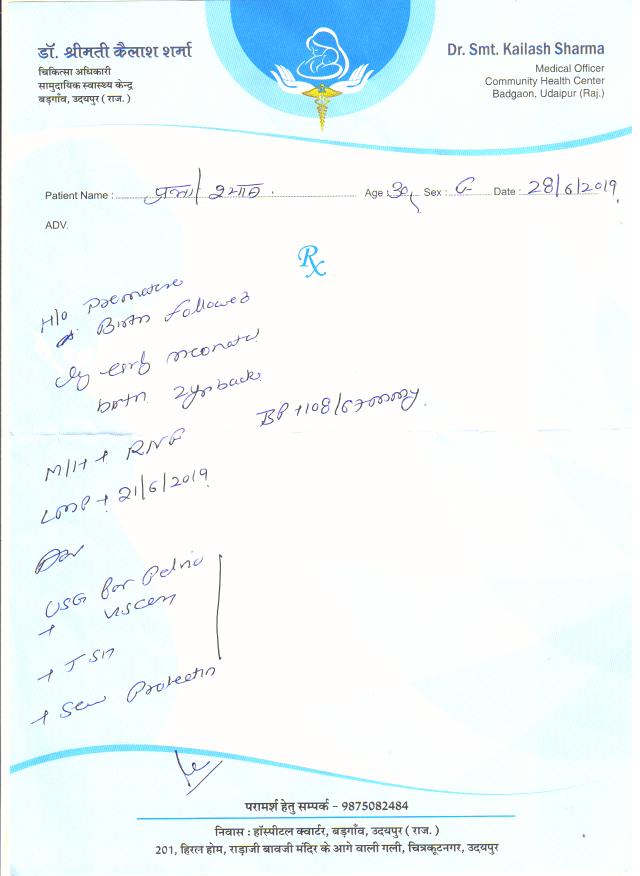 डॉ. श्रीमती कैलाश शर्मा
चिकित्सा अधिकारी
सामुदायिक स्वास्थ्य केन्द्र
बड़गाँव, उदयपुर ( राज. )
Dr. Smt. Kailash Sharma
Medical Officer
Community Health Center
Badgaon, Udaipur (Raj.)
Patient Name : Age : 30 Sex : Date : 28/6/2019
ADV.
Rx
H/o Premature
Birth followed
by early neonatal
birth 2yrs back
BP → 108/67mmHg.
M/H →
LMP → 21/6/2019
Adv
USG for Pelvic
+ viscera
+ TSH
+ Serum Prolactin
परामर्श हेतु सम्पर्क – 9875082484
निवास : हॉस्पीटल क्वार्टर, बड़गाँव, उदयपुर ( राज. )
201, हिरल होम, राड़ाजी बावजी मंदिर के आगे वाली गली, चित्रकूटनगर, उदयपुर